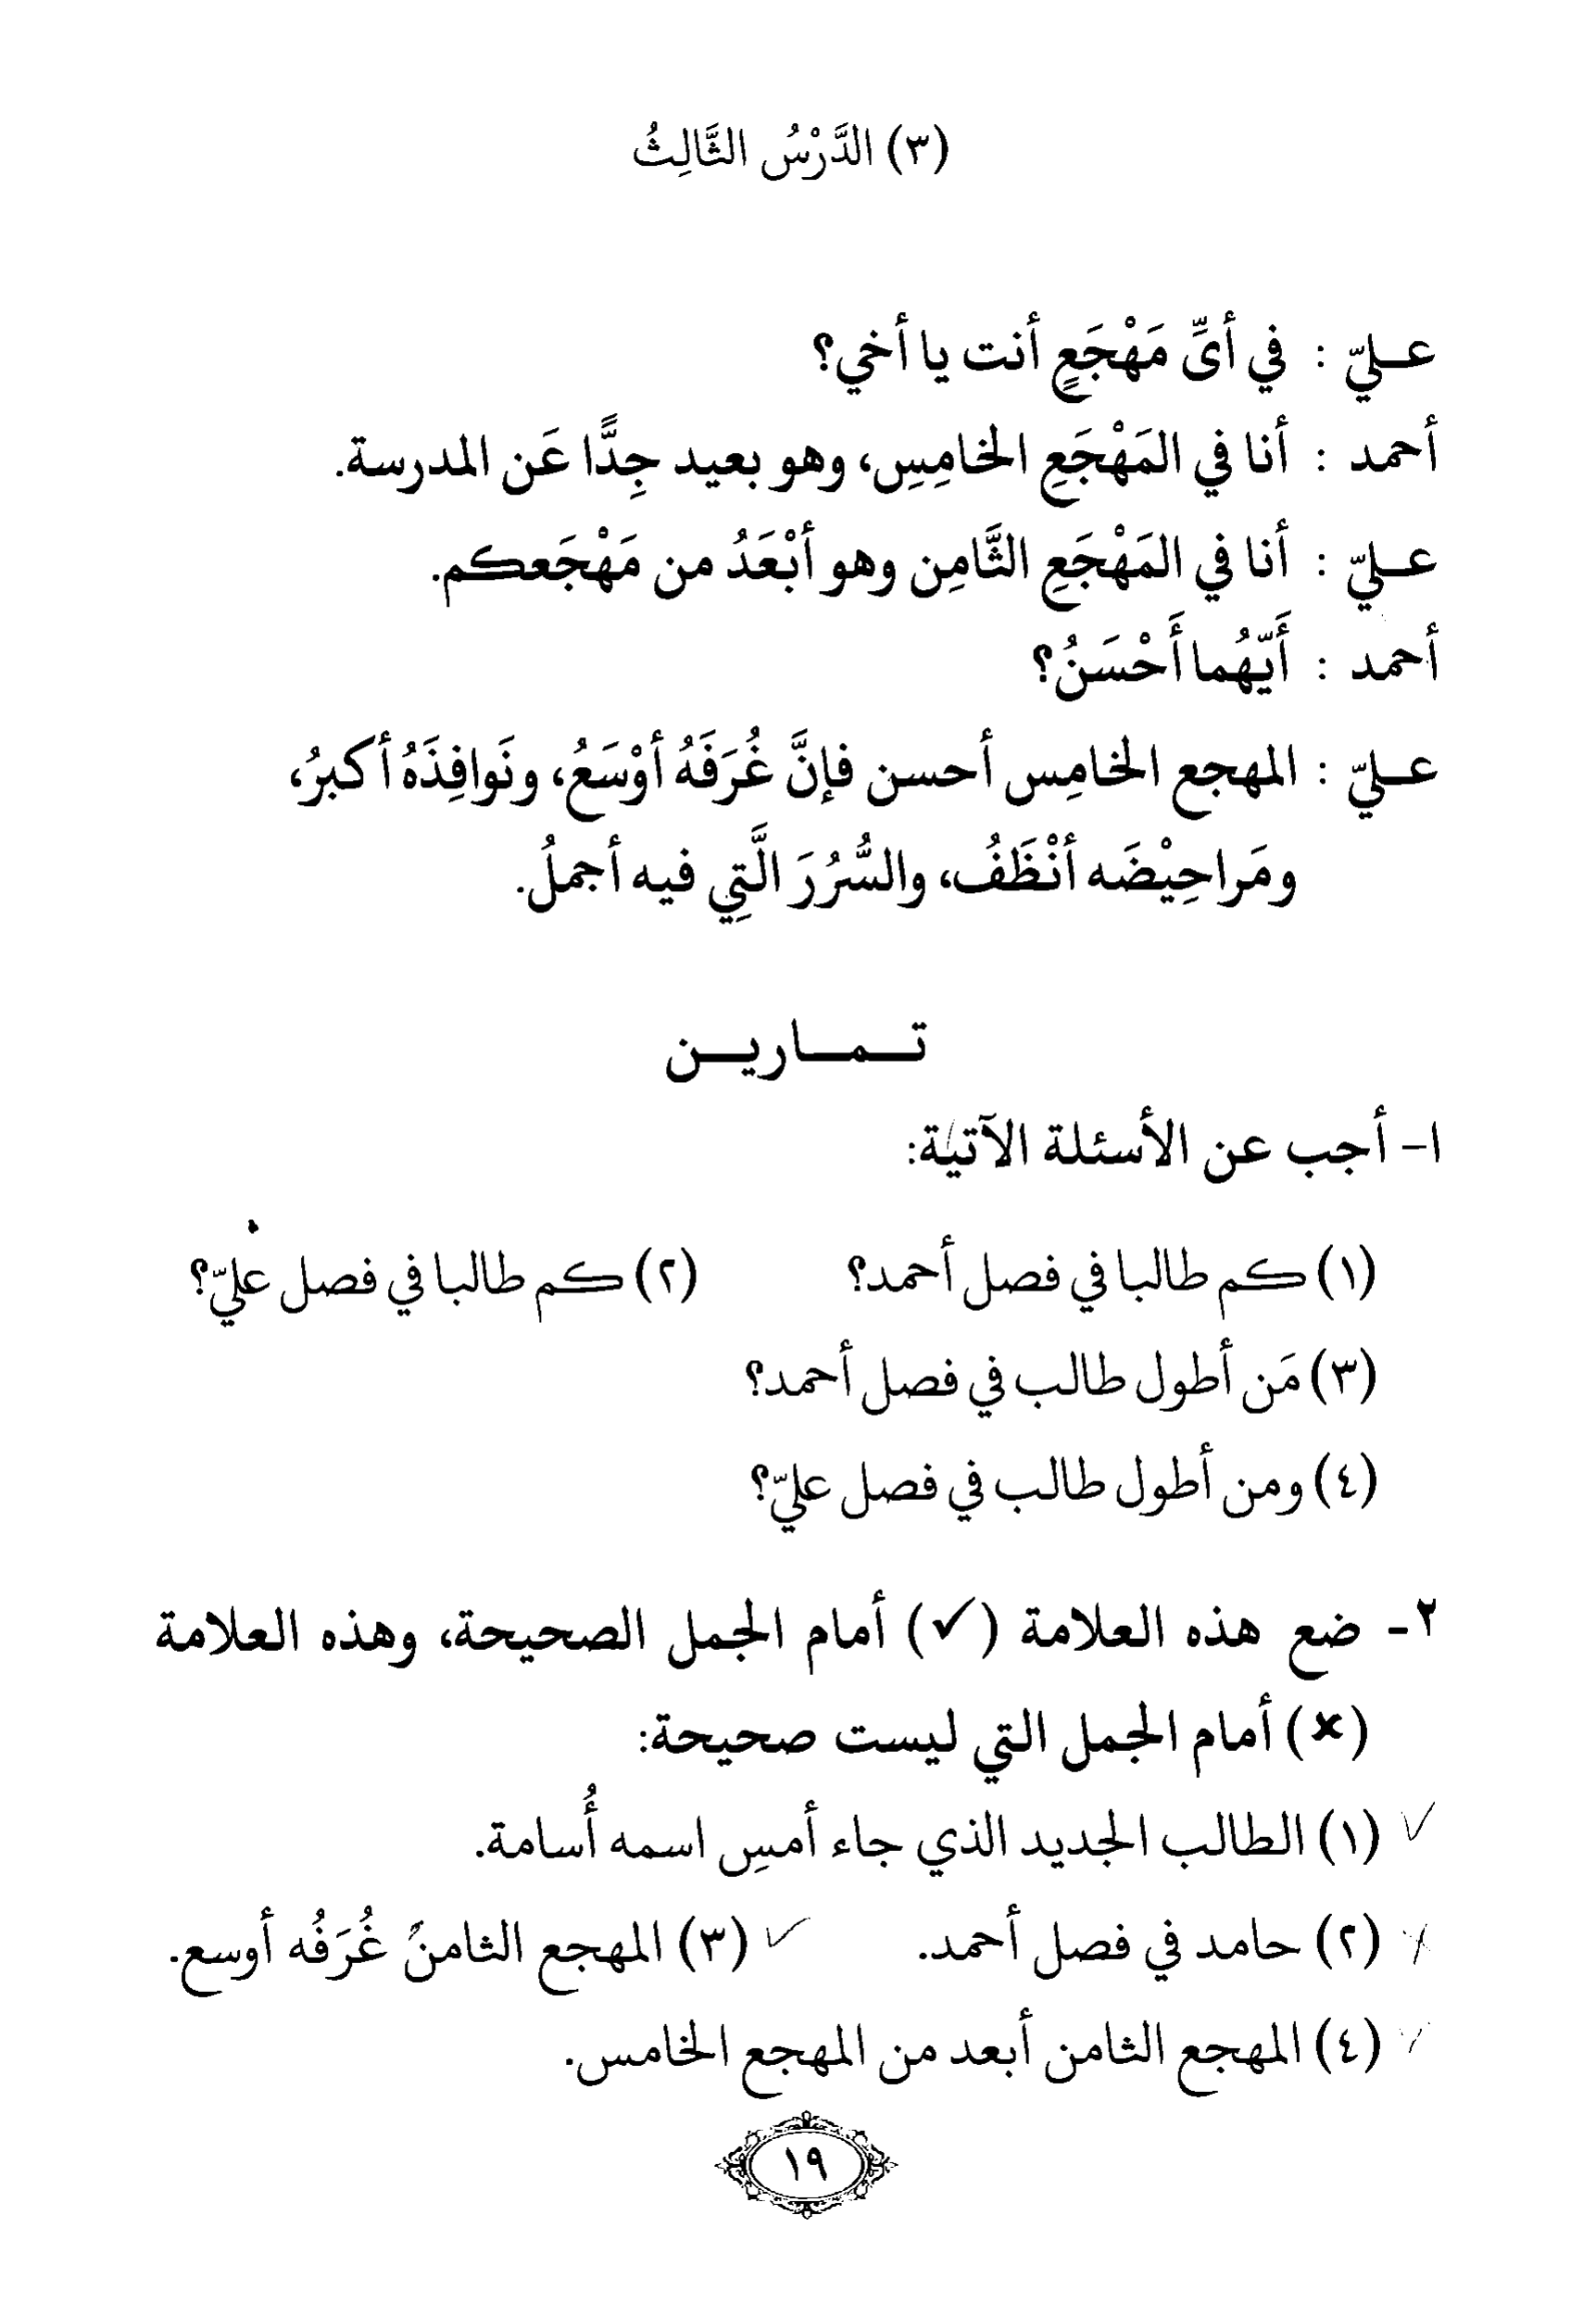 (٣) الدَّرْسُ الثَّالِثُ
عـليّ : في أىِّ مَهْجَعٍ أنت يا أخي؟
أحمد : أنا في المَهْجَعِ الخامِسِ، وهو بعيد جِدًّا عَن المدرسة.
عـليّ : أنا في المَهْجَعِ الثَّامِن وهو أبْعَدُ من مَهْجَعكم.
أحمد : أَيّهُما أَحْسَنُ؟
عـليّ : المهجع الخامِس أحسن فإنَّ غُرَفَهُ أوْسَعُ، ونَوافِذَهُ أكبرُ،
ومَراحِيْضَه أنْظَفُ، والسُّرُرَ الَّتِي فيه أجملُ.
تـمـارين
١- أجب عن الأسئلة الآتية:
(١) كم طالبا في فصل أحمد؟ (٢) كم طالبا في فصل عليّ؟
(٣) مَن أطول طالب في فصل أحمد؟
(٤) ومن أطول طالب في فصل عليّ؟
٢- ضع هذه العلامة (✓) أمام الجمل الصحيحة، وهذه العلامة
(✗) أمام الجمل التي ليست صحيحة:
✓ (١) الطالب الجديد الذي جاء أمسِ اسمه أُسامة.
✗ (٢) حامد في فصل أحمد. ✓ (٣) المهجع الثامنُ غُرَفُه أوسع.
✓ (٤) المهجع الثامن أبعد من المهجع الخامس.
١٩